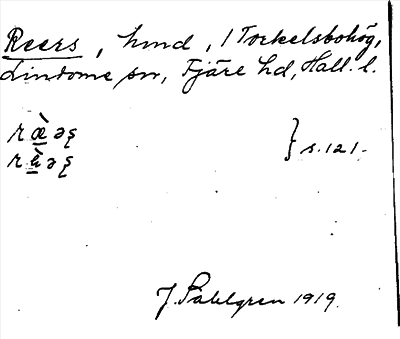 Reers, hmd, 1 Torkelsbohög,
Lindome sn, Fjäre hd, Hall. l.
} s. 121.
J. Sahlgren 1919.